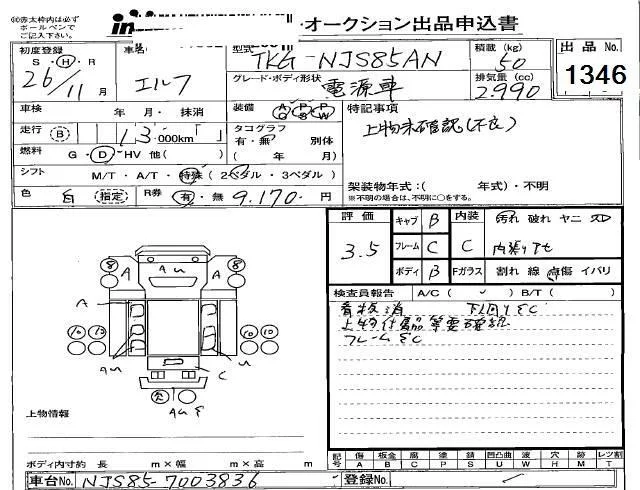 ◎赤太枠内は必ず
ボールペンで
ご記入下さい。
・オークション出品申込書
初度登録
S・H・R
26/11月
車名
エルフ
型式
TKG-NJS85AN
グレード・ボディ形状
電源車
積載(kg)
50
排気量(cc)
2990
出品No.
1346
車検 年・月・抹消
装備 AC PS PW
特記事項
上物未確認(不良)
走行 B 13,000km
タコグラフ
有・無 別体
( 年 月)
燃料 G・D・HV 他( )
シフト M/T・A/T・特殊(2ペダル・3ペダル)
架装物年式:( 年式)・不明
※不明の場合は、不明に○をする。
色 白 (指定) R券 有・無 9,170円
評価 3.5
キャブ B
フレーム C
ボディ B
内装 C
Fガラス
汚れ 破れ ヤニ スレ
割れ 線 点傷 イバリ
検査員報告 A/C( ✓ ) B/T( )
下回りサC
フレームサC
8 A AU A 8
A
10 13 10 10
AU U
C
AU サ
上物情報
ボディ内寸約 長 m×幅 m×高 m
記号 傷 板金 腐 塗 錆 凹凸曲 波 穴 跡 レツ割
A B C P S U W H M T
車台No. NJS85-7003836
登録No.